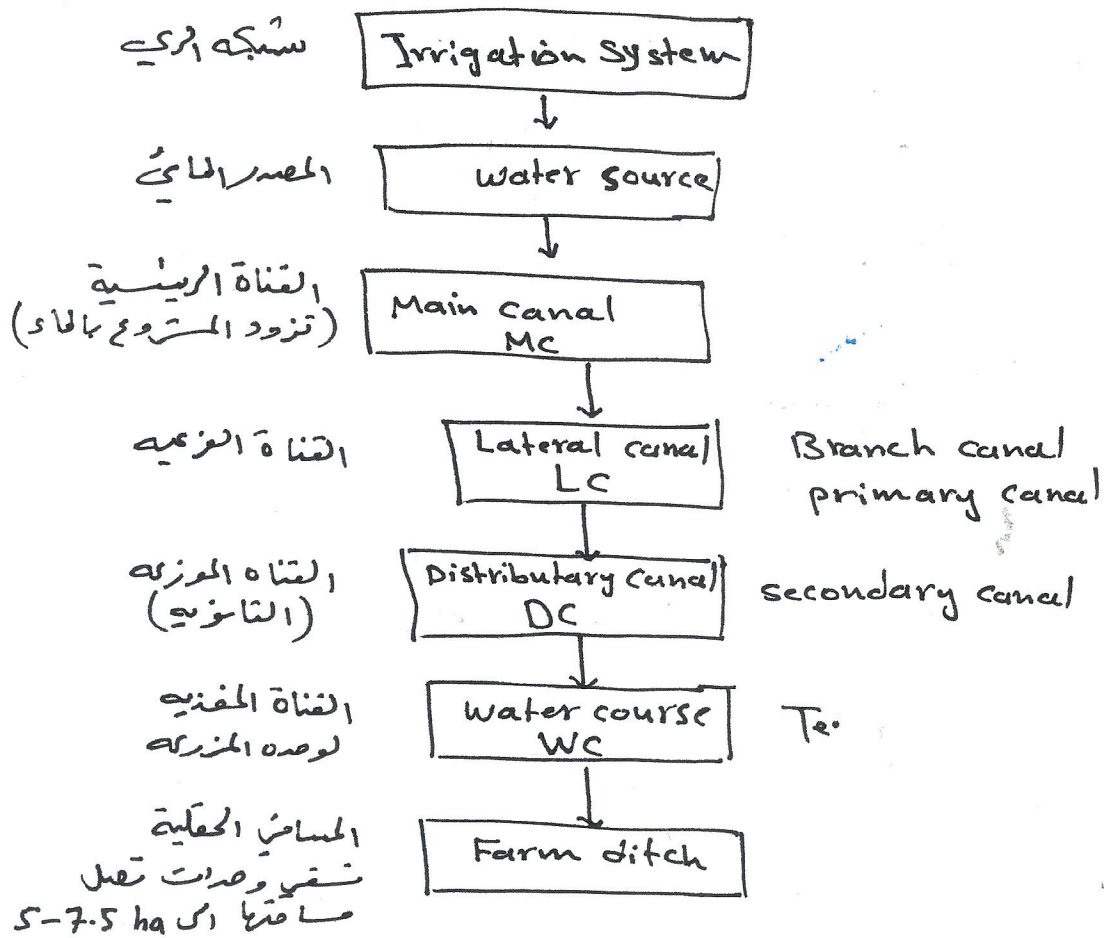 شبكه الري
Irrigation System
المصدر المائي
water source
القناة الرئيسية
(تزود المشروع بالماء)
Main canal
MC
القناة الفرعيه
Lateral canal
LC
Branch canal
primary canal
القناه الموزعه
(الثانويه)
Distributary Canal
DC
secondary canal
القناة المغذيه
لوحده المزرعه
water course
WC
Te.
المساقي الحقلية
تسقي وحدات تصل
مساحتها الى 5-7.5 ha
Farm ditch